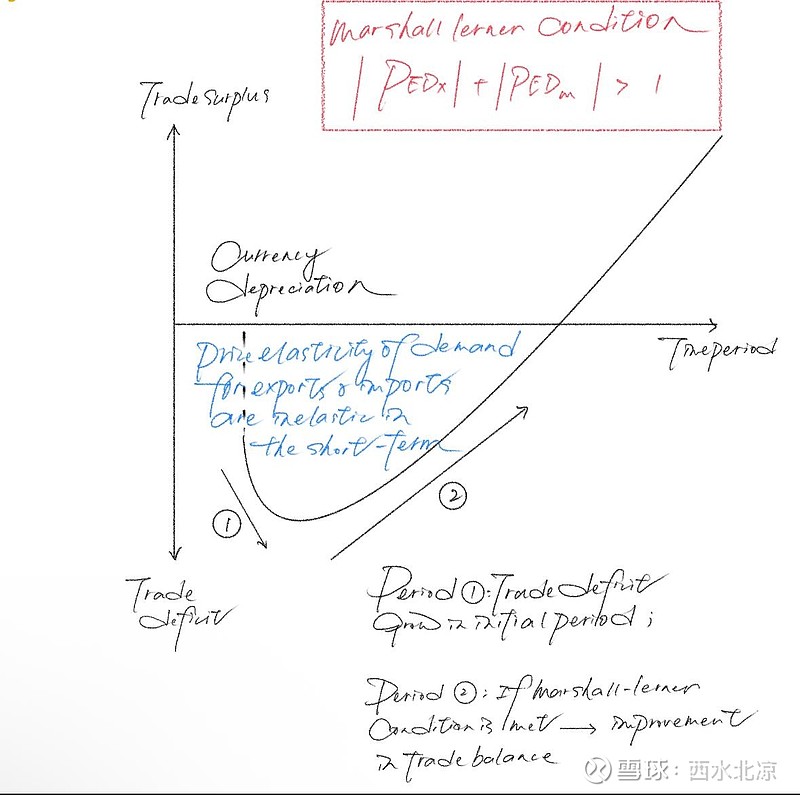 Marshall lerner Condition
|PEDx| + |PEDm| > 1
Trade surplus
Currency
depreciation
Time period
Price elasticity of demand
for exports & imports
are inelastic in
the short-term
①
②
Trade
deficit
Period ①: Trade deficit
Grow in initial period;
Period ②: If Marshall-lerner
Condition is met → improvement
in trade balance
雪球：西水北凉